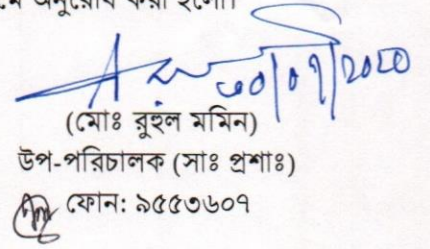 অনুরোধ করা হলো।
৩০/০৭/২০২০
(মোঃ রুহুল মমিন)
উপ-পরিচালক (সাঃ প্রশাঃ)
ফোন: ৯৫৫৩৬০৭